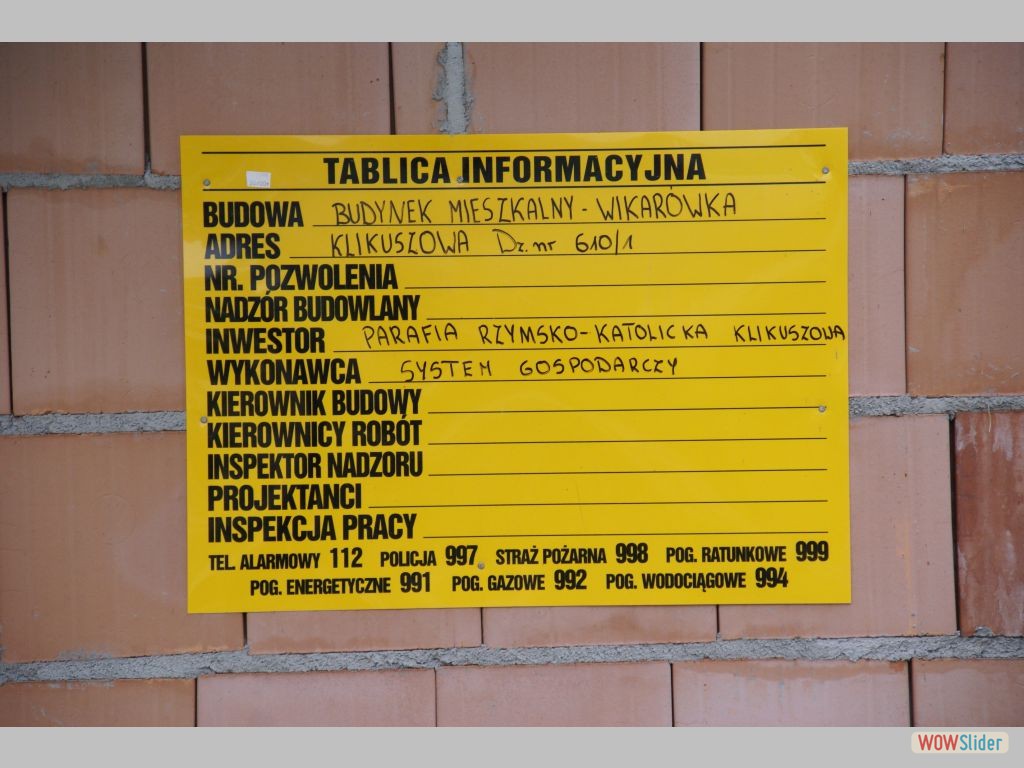 TABLICA INFORMACYJNA
BUDOWA BUDYNEK MIESZKALNY - WIKARÓWKA
ADRES KLIKUSZOWA Dz. nr 610/1
NR. POZWOLENIA
NADZÓR BUDOWLANY
INWESTOR PARAFIA RZYMSKO-KATOLICKA KLIKUSZOWA
WYKONAWCA SYSTEM GOSPODARCZY
KIEROWNIK BUDOWY
KIEROWNICY ROBÓT
INSPEKTOR NADZORU
PROJEKTANCI
INSPEKCJA PRACY
TEL. ALARMOWY 112 POLICJA 997 STRAŻ POŻARNA 998 POG. RATUNKOWE 999
POG. ENERGETYCZNE 991 POG. GAZOWE 992 POG. WODOCIĄGOWE 994
WOWSlider